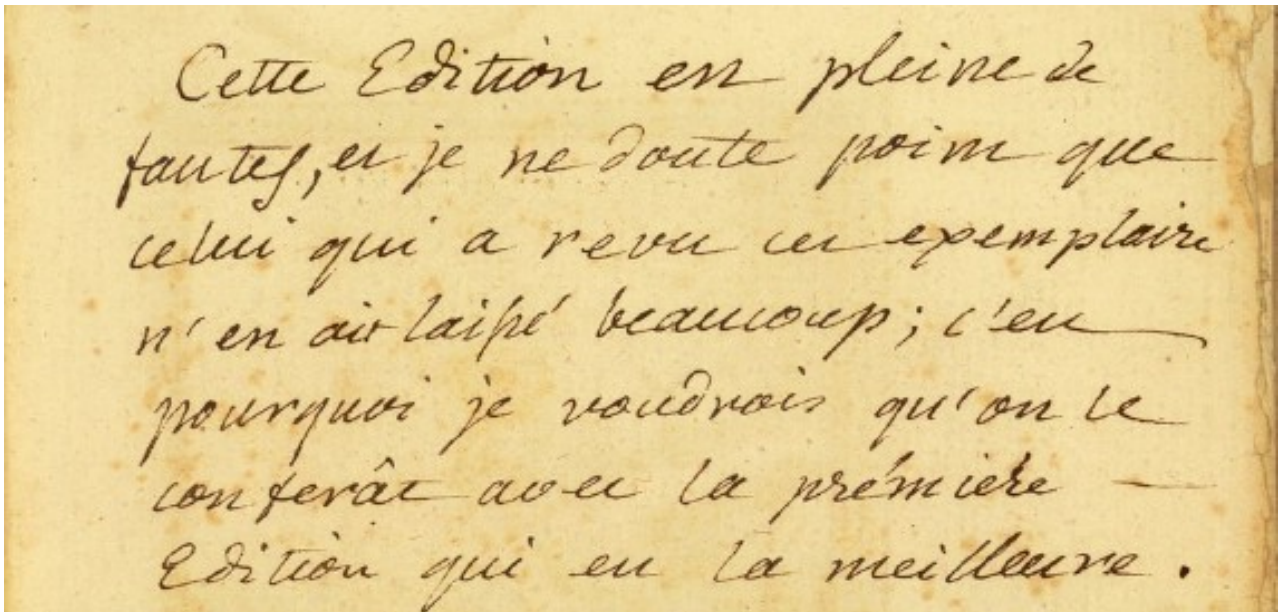 Cette Edition est pleine de
fautes, et je ne doute point que
celui qui a revu cet exemplaire
n'en ait laissé beaucoup ; c'est
pourquoi je voudrois qu'on le
conferât avec la prémiére
Edition qui est la meilleure.